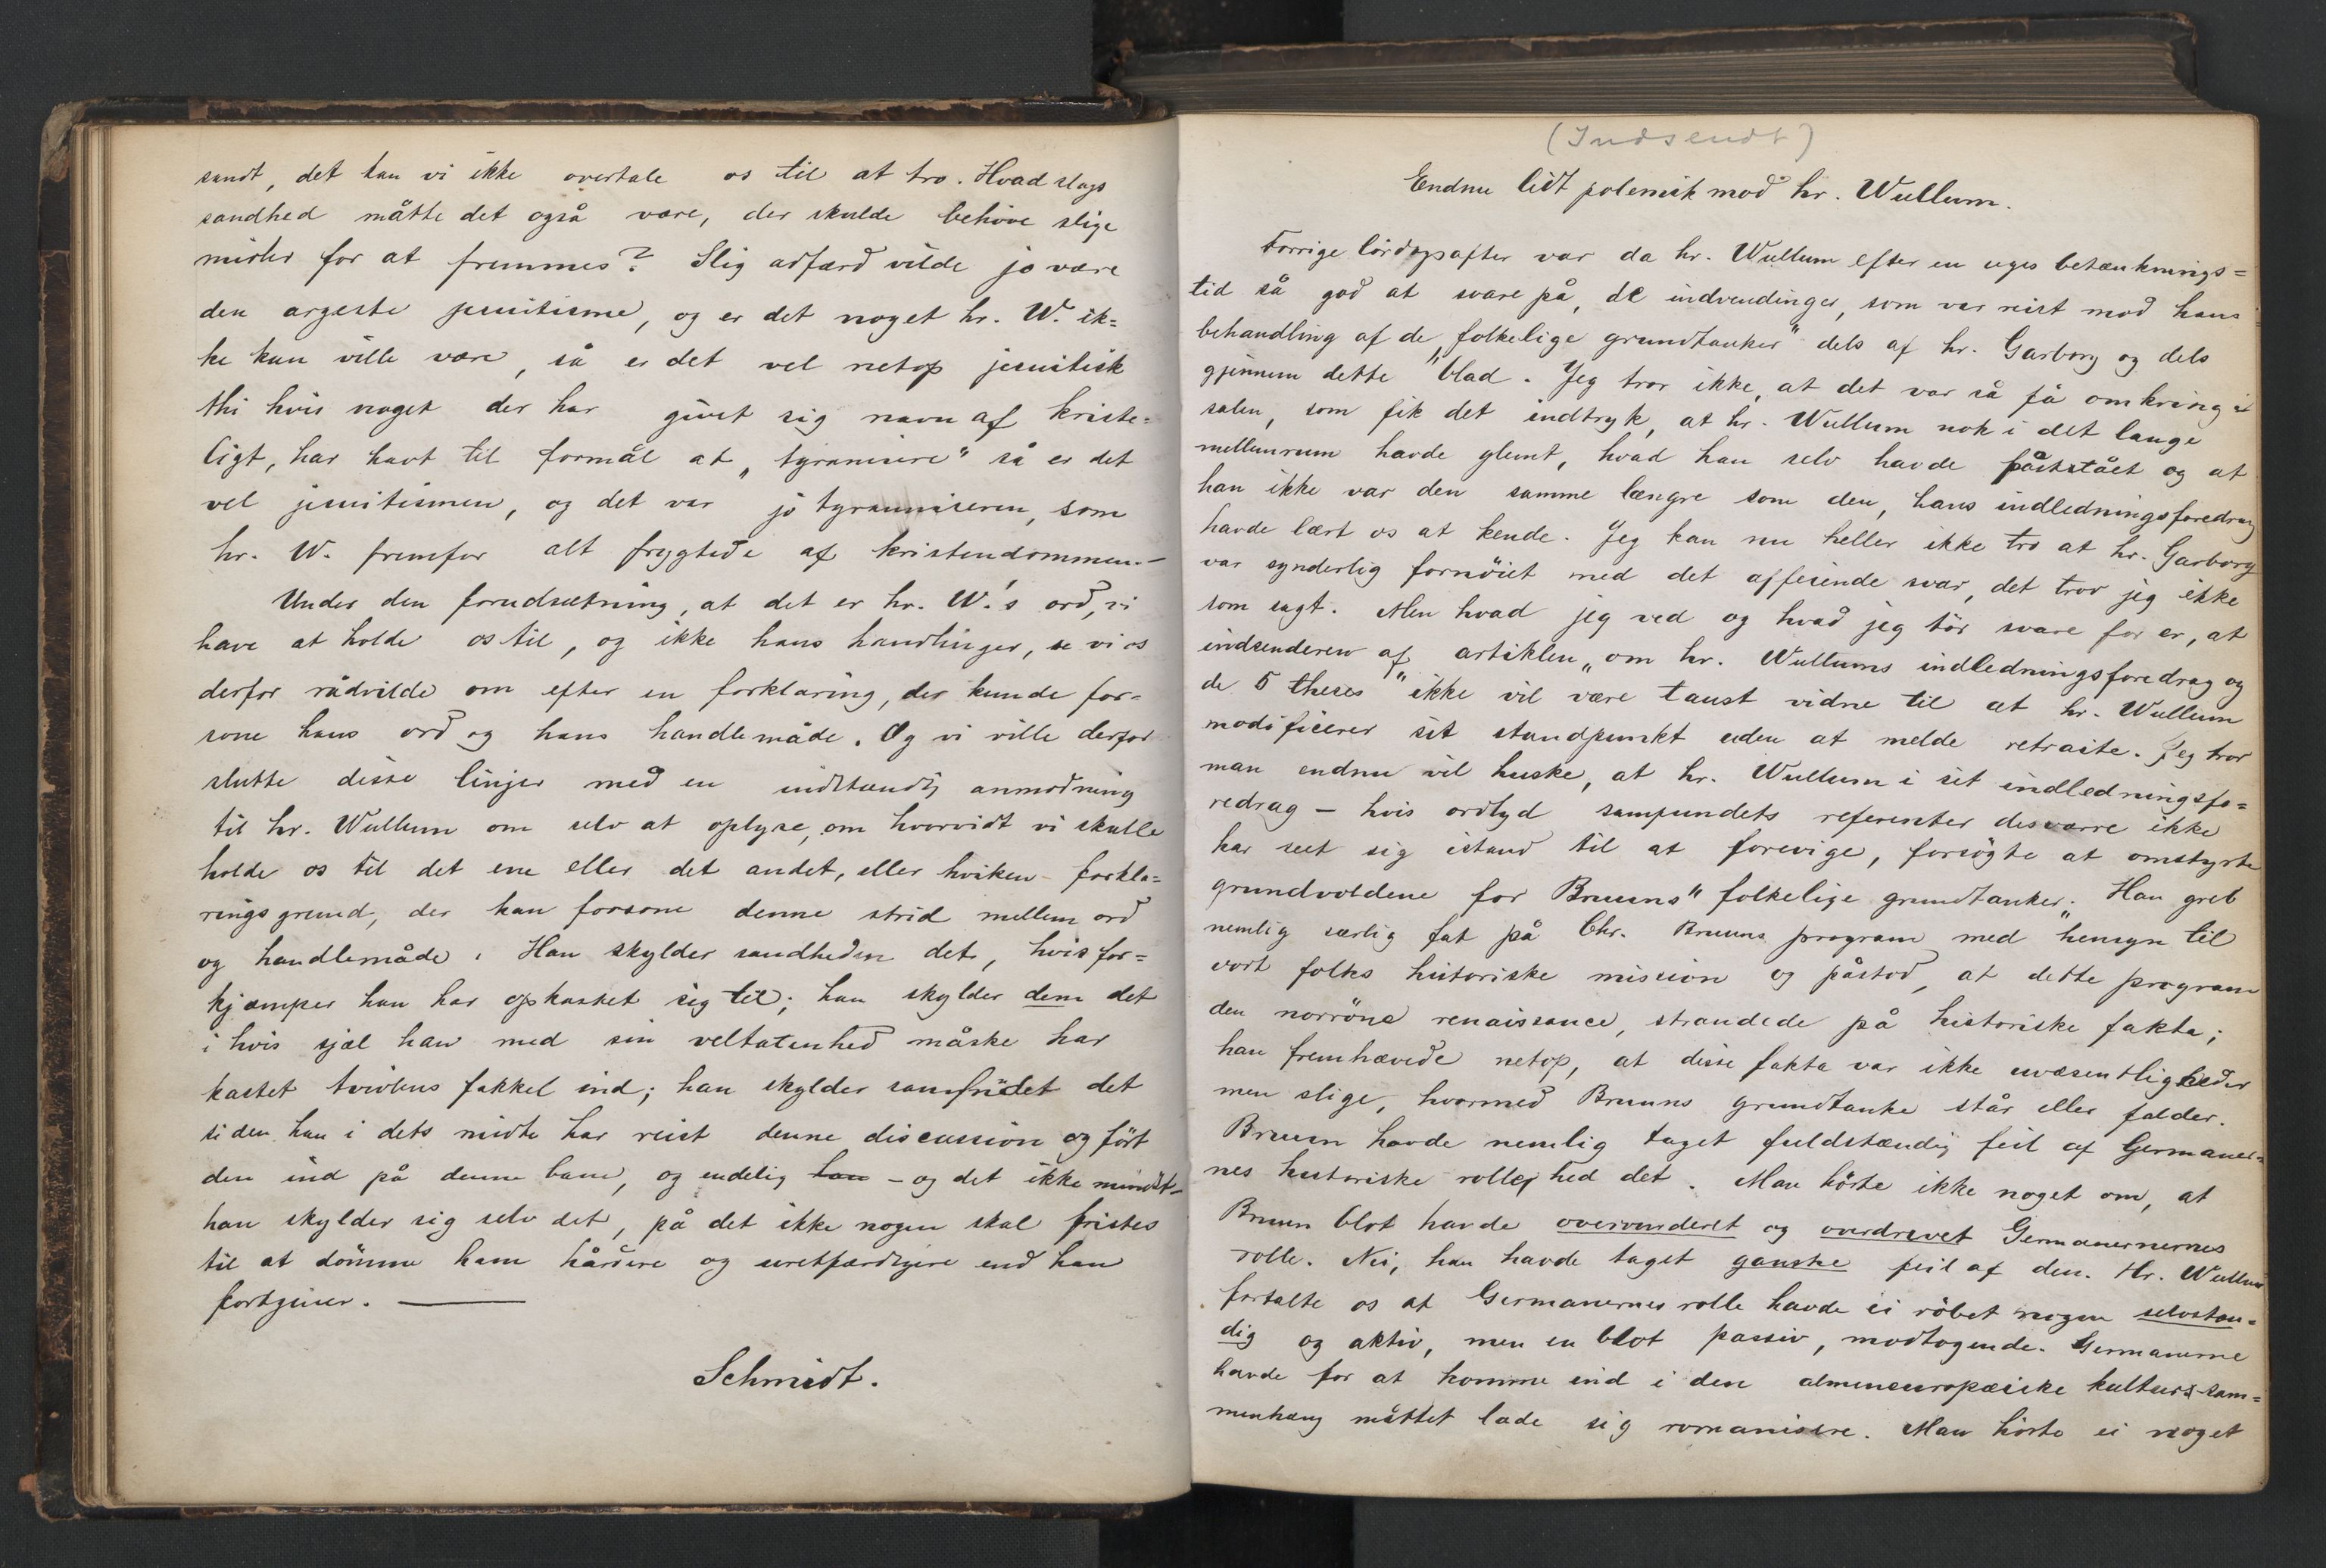 sandt, det kan vi ikke overtale os til at tro. Hvad slags
sandhed måtte det også være, der skulde behöve slige
midler for at fremmes? Slig adfærd vilde jo være
den argeste jesuitisme, og er det noget hr. W. ik=
ke kan ville være, så er det vel netop jesuitisk
thi hvis noget der har givet sig navn af kriste=
ligt, har havt til formål at „tyranisere" så er det
vel jesuitismen, og det var jo tyranniseren, som
hr. W. fremfor alt frygtede af kristendommen.—
Under den forudsætning, at det er hr. W.'s ord, vi
have at holde os til, og ikke hans handlinger, se vi os
derfor rådvilde om efter en forklaring, der kunde for-
sone hans ord og hans handlemåde. Og vi ville derfor
slutte disse linjer med en indstændig anmodning
til hr. Wullum om selv at oplyse, om hvorvidt vi skulle
holde os til det ene eller det andet, eller hvilken forkla=
ringsgrund, der kan forsone denne strid mellem ord
og handlemåde. Han skylder sandheden det, hvis for=
kjæmper han har opkastet sig til; han skylder dem det
i hvis sjæl han med sin veltalenhed måske har
kastet tvivlens fakkel ind; han skylder samfundet det
siden han i dets midte har reist denne discussion og fört
den ind på denne bane, og endelig han – og det ikke mindst–
han skylder sig selv det, på det ikke nogen skal fristes
til at dömme ham hårdere og uretfærdigere end han
fortjener. —
Schmidt.
(Indsendt)
Endnu lidt polemik mod hr. Wullum.
Forrige lördagsaften var da hr. Wullum efter en uges betænknings=
tid så god at svare på, de indvendinger, som var reist mod hans
behandling af de „folkelige grundtanker" dels af hr. Garborg og dels
gjennem dette blad. Jeg tror ikke, at det var så få omkring i
salen, som fik det indtryk, at hr. Wullum nok i det lange
mellemrum havde glemt, hvad han selv havde påstået og at
han ikke var den samme længre som den, hans indledningsforedrag
havde lært os at kende. Jeg kan nu heller ikke tro at hr. Garborg
var synderlig fornöiet med det affeiende svar, det tror jeg ikke
som sagt. Men hvad jeg ved og hvad jeg tör svare for er, at
indsenderen af artiklen „om hr. Wullums indledningsforedrag og
de 5 theses" ikke vil være taust vidne til at hr. Wullum
modificerer sit standpunkt uden at melde retraite. Jeg tror
man endnu vil huske, at hr. Wullum i sit indledningsfo=
redrag – hvis ordlyd samfundets referenter desværre ikke
har seet sig istand til at forevige, forsögte at omstyrte
grundvoldene for Bruuns "folkelige grundtanker„. Han greb
nemlig særlig fat på Chr. Bruuns program med hensyn til
vort folks historiske mission og påstod, at dette program
den norröne renaissance, strandede på historiske fakta;
han fremhævede netop, at disse fakta var ikke uvæsentligheder
men slige, hvormed Bruuns grundtanke står eller falder.
Bruun havde nemlig taget fuldstændig feil af Germaner=
nes historiske rolle, hed det. Man hörte ikke noget om, at
Bruun blot havde overvurderet og overdrevet Germanernernes
rolle. Nei, han havde taget ganske feil af den. Hr. Wullum
fortalte os at Germanernes rolle havde ei röbet nogen selvstæn=
dig og aktiv, men en blot passiv, modtagende. Germanerne
havde for at komme ind i den almeneuropæiske kulturs-sam=
menhæng måttet lade sig romanisere. Man hörte ei noget